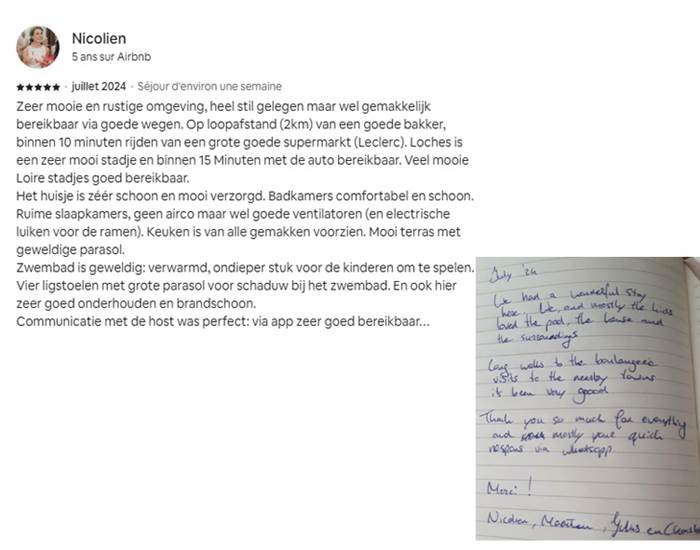 Nicolien
5 ans sur Airbnb
★★★★★ · juillet 2024 · Séjour d'environ une semaine
Zeer mooie en rustige omgeving, heel stil gelegen maar wel gemakkelijk
bereikbaar via goede wegen. Op loopafstand (2km) van een goede bakker,
binnen 10 minuten rijden van een grote goede supermarkt (Leclerc). Loches is
een zeer mooi stadje en binnen 15 Minuten met de auto bereikbaar. Veel mooie
Loire stadjes goed bereikbaar.
Het huisje is zéér schoon en mooi verzorgd. Badkamers comfortabel en schoon.
Ruime slaapkamers, geen airco maar wel goede ventilatoren (en electrische
luiken voor de ramen). Keuken is van alle gemakken voorzien. Mooi terras met
geweldige parasol.
Zwembad is geweldig: verwarmd, ondieper stuk voor de kinderen om te spelen.
Vier ligstoelen met grote parasol voor schaduw bij het zwembad. En ook hier
zeer goed onderhouden en brandschoon.
Communicatie met de host was perfect: via app zeer goed bereikbaar...
July '24
We had a wonderful stay
here. We, and mostly the kids
loved the pool, the house and
the surroundings
Long walks to the boulangerie
visits to the nearby towns
it's been very good
Thank you so much for everything
and mostly your quick
respons via whatsapp.
Merci!
Nicolien, Maarten, en